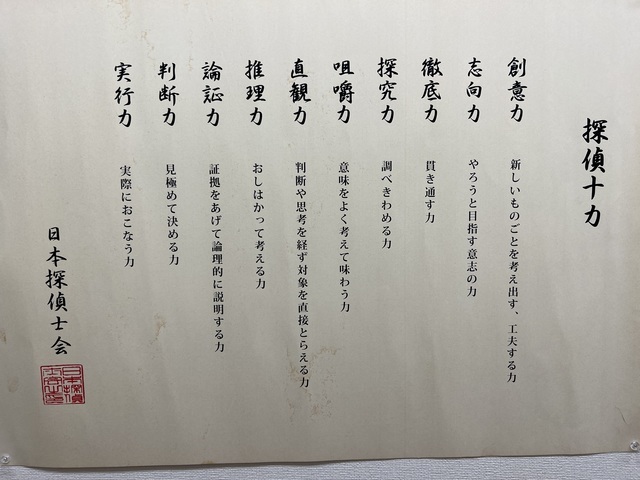 探偵十力
創意力 新しいものごとを考え出す、工夫する力
志向力 やろうと目指す意志の力
徹底力 貫き通す力
探究力 調べきわめる力
咀嚼力 意味をよく考えて味わう力
直観力 判断や思考を経ず対象を直接とらえる力
推理力 おしはかって考える力
論証力 証拠をあげて論理的に説明する力
判断力 見極めて決める力
実行力 実際におこなう力
日本探偵士会